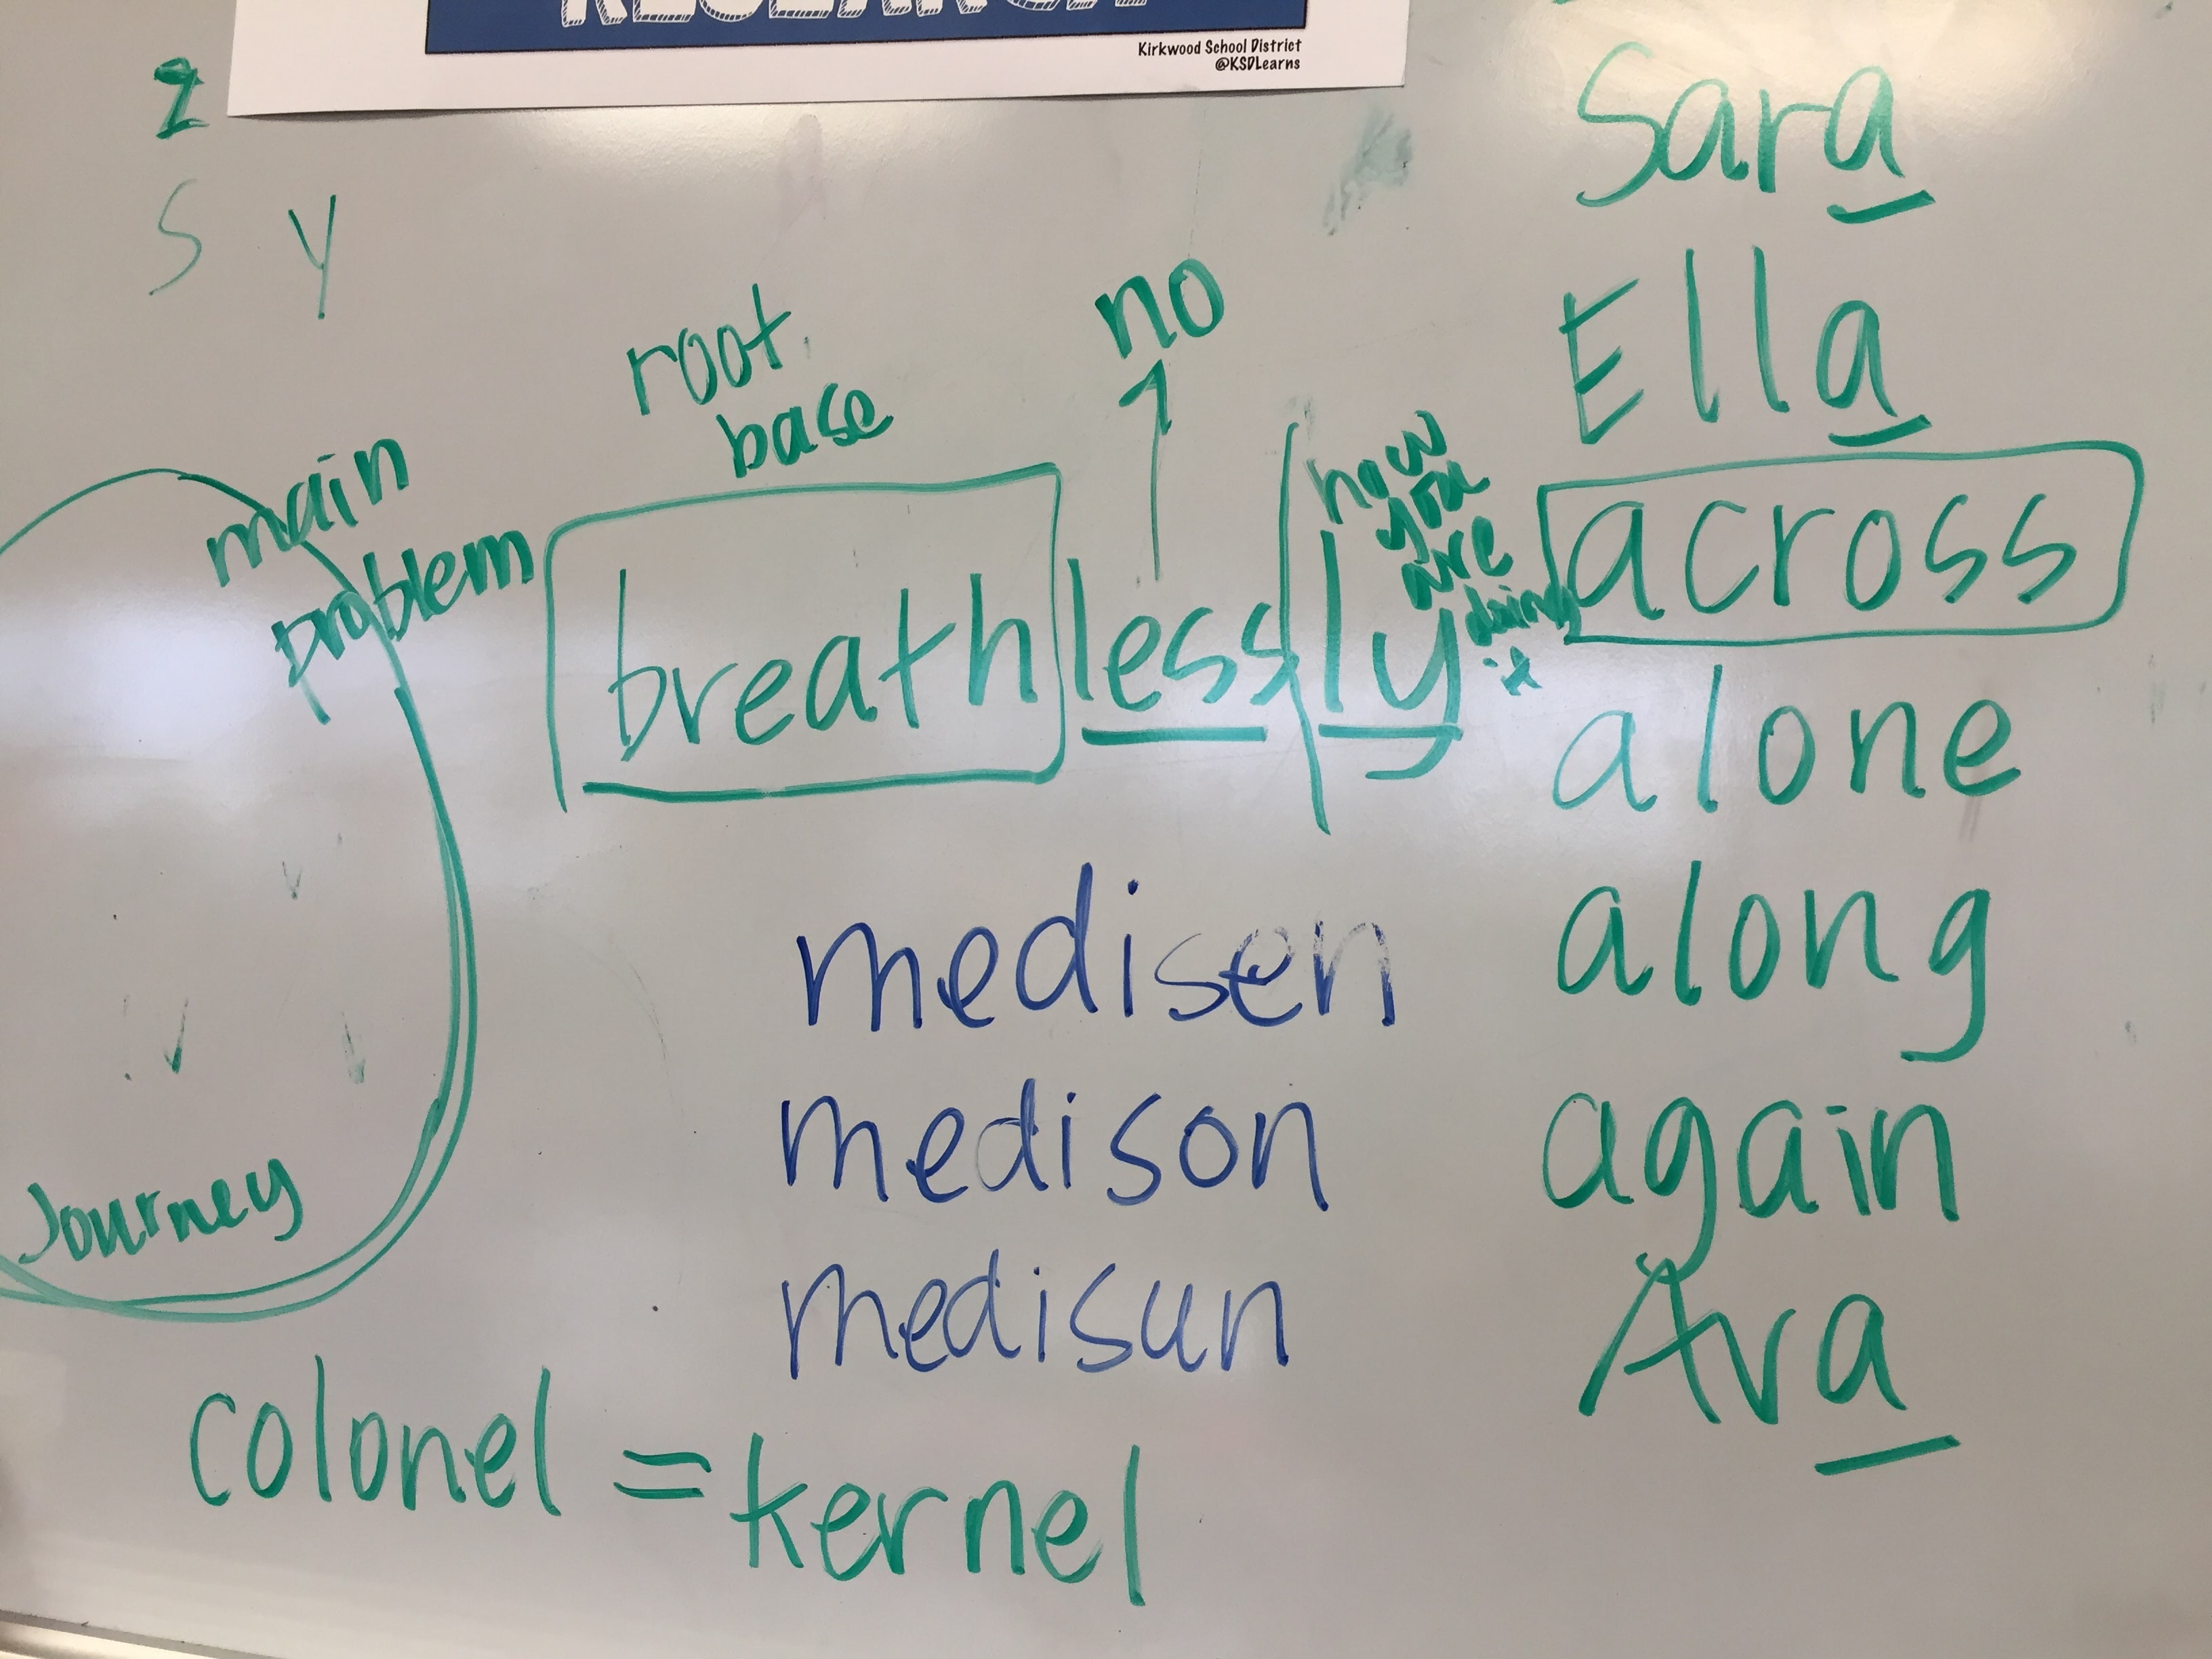 RESEARCH
Kirkwood School District
@KSDLearns
S Y
root
base
no
main
problem
how
you
are
doing
it
breathlessly
Journey
medisen
medison
medisun
colonel = kernel
Sara
Ella
across
alone
along
again
Ava